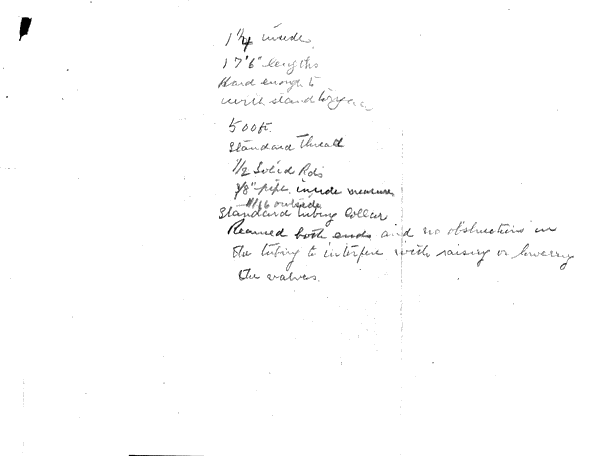 1 1/4 inside.
17'6" lengths
Hard enough to
with stand
500 ft.
Standard Thread
1/2 Solid Rods
3/8" pipe. inside measure
11/16 outside
Standard tubing Collar
Reamed both ends and no obstructions in
the tubing to interfere with raising or lowering
the valves.